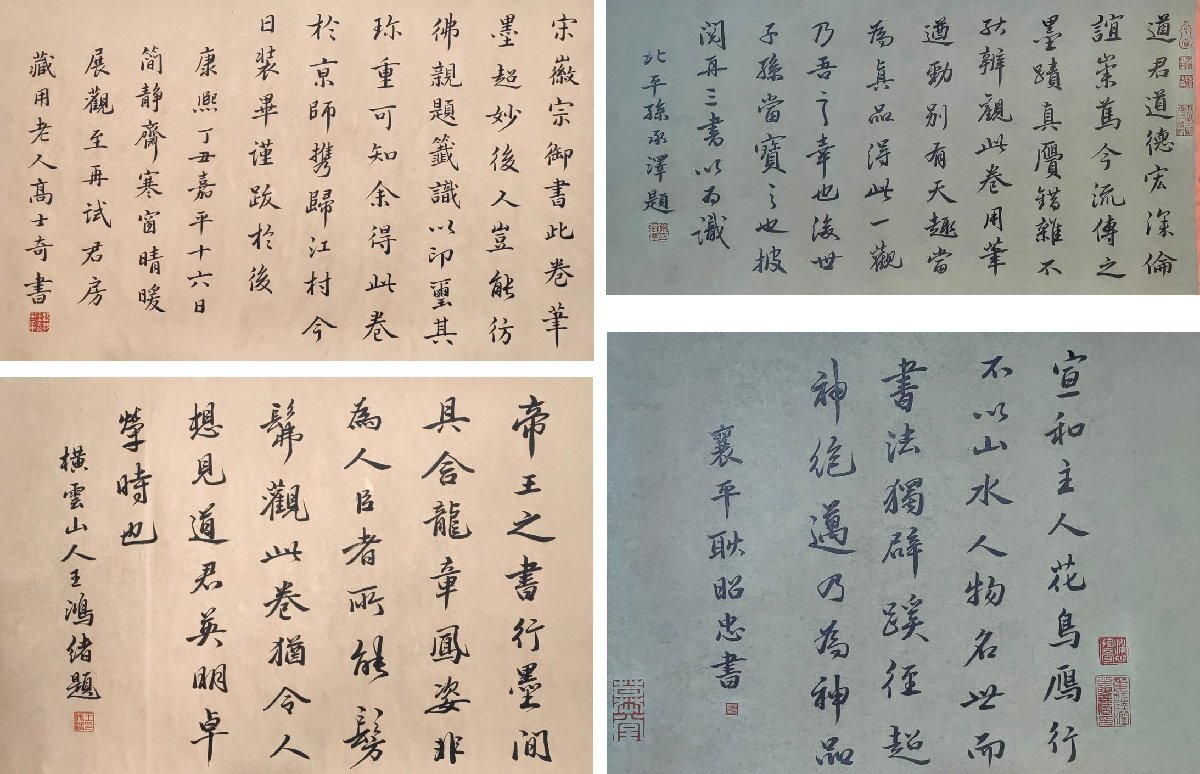 道君道德宏深倫
誼崇萬今流傳之
墨蹟真贗錯雜不
能辯觀此卷用筆
遒勁別有天趣當
為真品得此一觀
乃吾之幸也後世
子孫當寶之也披
閱再三書以為識
北平孫承澤題
宗徽宗御書此卷筆
墨超妙後人豈能彷
彿親題籤識以印璽其
珍重可知余得此卷
於京師携歸江村今
日裝畢謹跋於後
康熙丁丑嘉平十六日
簡靜齋寒窗晴暖
展觀至再試君房
藏用老人高士奇書
宣和主人花鳥鴈行
不以山水人物名世而
書法獨辟蹊徑超
神絕邁乃為神品
襄平耿昭忠書
帝王之書行墨間
具含龍章鳳姿非
為人臣者所能髣
髴觀此卷猶令人
想見道君英明卓
犖時也
橫雲山人王鴻緒題